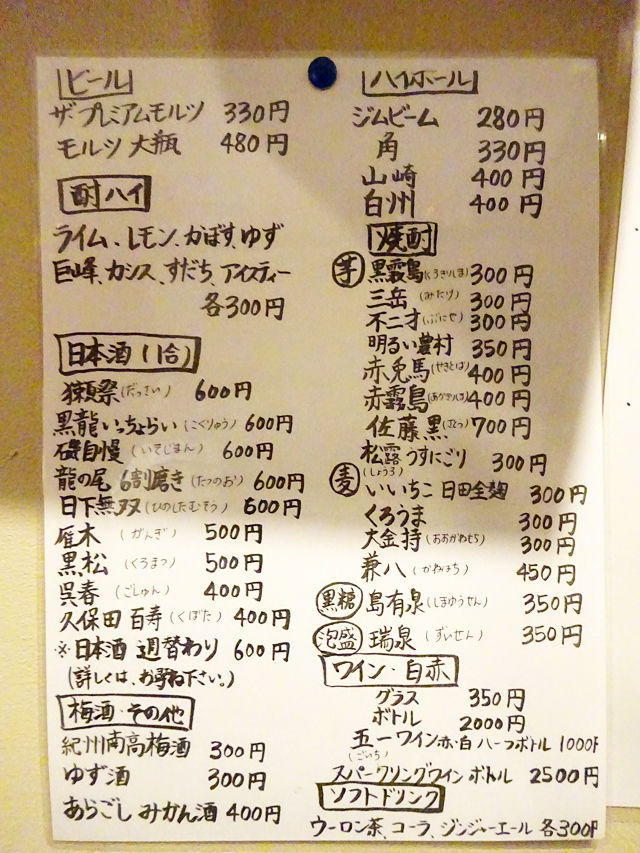 ビール
ザ・プレミアムモルツ 330円
モルツ 大瓶 480円
酎ハイ
ライム、レモン、かぼす、ゆず
巨峰、カシス、すだち、アイスティー
各300円
日本酒(1合)
獺祭(だっさい) 600円
黒龍いっちょらい(こくりゅう) 600円
磯自慢(いそじまん) 600円
龍の尾 6割磨き(たつのお) 600円
日下無双(ひのしたむそう) 600円
雁木(がんぎ) 500円
黒松(くろまつ) 500円
呉春(ごしゅん) 400円
久保田 百寿(くぼた) 400円
※日本酒 週替わり 600円
(詳しくは、お尋ね下さい。)
梅酒・その他
紀州南高梅酒 300円
ゆず酒 300円
あらごし みかん酒 400円
ハイボール
ジムビーム 280円
角 330円
山崎 400円
白州 400円
焼酎
芋 黒霧島(くろきりしま) 300円
三岳(みたけ) 300円
不二才(ぶにせ) 300円
明るい農村 350円
赤兎馬(せきとば) 400円
赤霧島(あかきりしま) 400円
佐藤 黒(さとう) 700円
松露 うすにごり 300円
(しょうろ)
麦 いいちこ 日田全麹 300円
くろうま 300円
大金持(おおがねもち) 300円
兼八(かねはち) 450円
黒糖 島有泉(しまゆうせん) 350円
泡盛 瑞泉(ずいせん) 350円
ワイン・白赤
グラス 350円
ボトル 2000円
五一ワイン 赤・白 ハーフボトル 1000円
(ごいち)
スパークリングワイン ボトル 2500円
ソフトドリンク
ウーロン茶、コーラ、ジンジャーエール 各300円